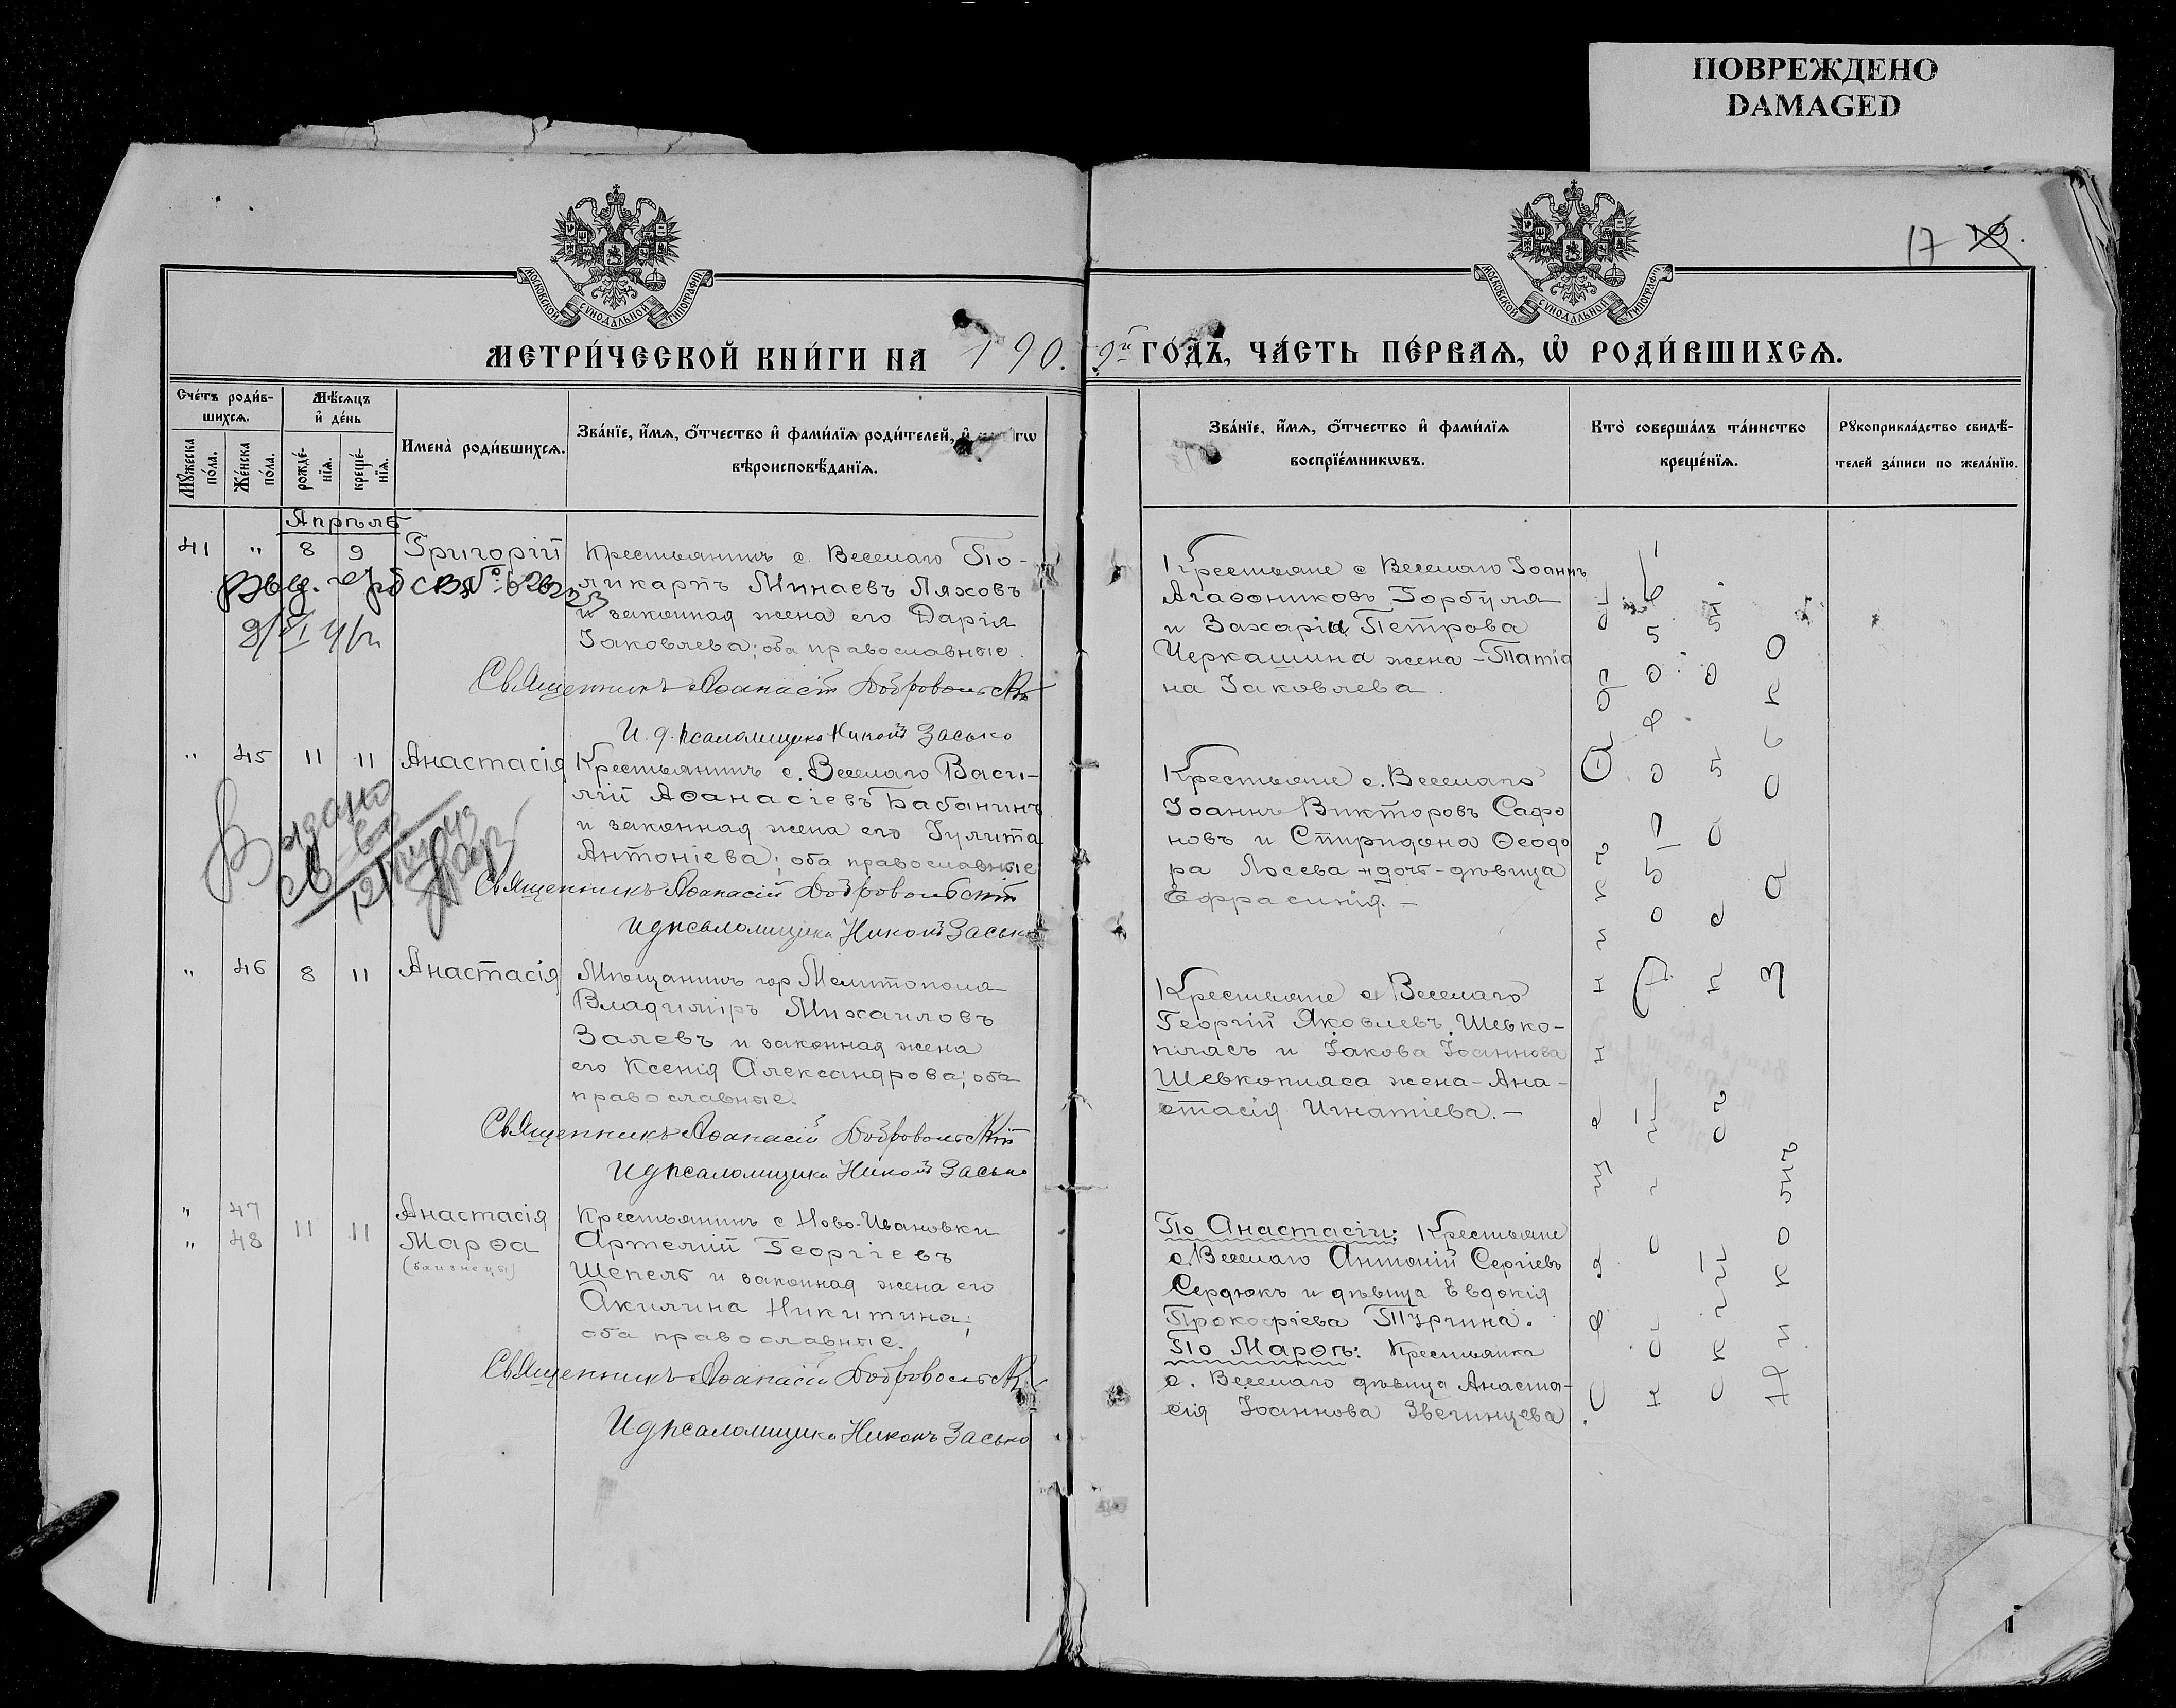 ПОВРЕЖДЕНО
DAMAGED
17
МОСКОВСКОЙ СѴНОДАЛЬНОЙ ТИПОГРАФІИ
МОСКОВСКОЙ СѴНОДАЛЬНОЙ ТИПОГРАФІИ
МЕТРИ́ЧЕСКОЙ КНИ́ГИ НА 1909й ГО́ДЪ, ЧА́СТЬ ПЕ́РВАѦ, Ѽ РОДИ́ВШИХСѦ.
Сче́тъ роди́в-
шихсѧ.
Мꙋ́жеска по́ла.
Же́нска по́ла.
Мѣ́сѧцъ
и҆ де́нь
рожде́-
нїѧ.
креще́-
нїѧ.
Имена̀ роди́вшихсѧ.
Зва́нїе, и҆́мѧ, ѻ҆́тчество и҆ фами́лїѧ роди́телей, и҆
вѣроисповѣ́данїѧ.
Зва́нїе, и҆́мѧ, ѻ҆́тчество и҆ фами́лїѧ
воспрїе́мникѡвъ.
Кто̀ соверша́лъ та́инство
креще́нїѧ.
Рꙋкоприкла́дство свидѣ́-
телей за́писи по жела́нїю.
Апрѣль
41 " 8 9 Григорій
Крестьянинъ с. Веселаго По-
ликарпъ Минаевъ Ляховъ
и законная жена его Дарія
Іаковлева; оба православные.
Священникъ Аѳанасій Добровольскій
И. д. псаломщика Никонъ Засько
Крестьяне с Веселаго Іоаннъ
Агаѳониковъ Горбуля
и Захарія Петрова
Черкашина жена - Татіа
на Іаковлева.
" 45 11 11 Анастасія
Выдано
Крестьянинъ с. Веселаго Васи-
лій Аѳанасіевъ Бабанинъ
и законная жена его Іулита
Антоніева; оба православные
Священникъ Аѳанасій Добровольскій
И д псаломщика Никонъ Засько
Крестьяне с. Веселаго
Іоаннъ Викторовъ Сафо
новъ и Спиридона Ѳеодо
ра Лосева - дочь - дѣвица
Ефрасинія. -
" 46 8 11 Анастасія
Мѣщанинъ гор Мелитополя
Владиміръ Михаиловъ
Залевъ и законная жена
его Ксенія Александрова; оба
православные.
Священникъ Аѳанасій Добровольскій
И д псаломщика Никонъ Засько
Крестьяне с Веселаго
Георгій Яковлевъ Шевко-
плясъ и Іакова Іоаннова
Шевкопляса жена - Ана-
стасія Игнатіева. -
" 47 Анастасія
" 48 11 11 Марѳа
(близнецы)
Крестьянинъ с Ново-Ивановки
Артемій Георгіевъ
Шепель и законная жена его
Акилина Никитина;
оба православные.
Священникъ Аѳанасій Добровольскій
И д псаломщика Никонъ Засько
По Анастасіи: Крестьяне
с. Веселаго Антоній Сергіевъ
Сердюкъ и дѣвица Евдокія
Прокофіева
По Марѳѣ: Крестьянка
с. Веселаго дѣвица Анаста-
сія Іоаннова Звегинцева.
Священникъ
Никонъ Засько